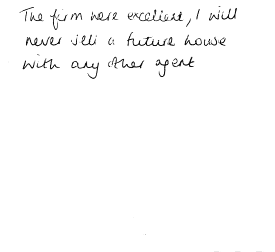 The firm were excellent, I will
never sell a future house
with any other agent